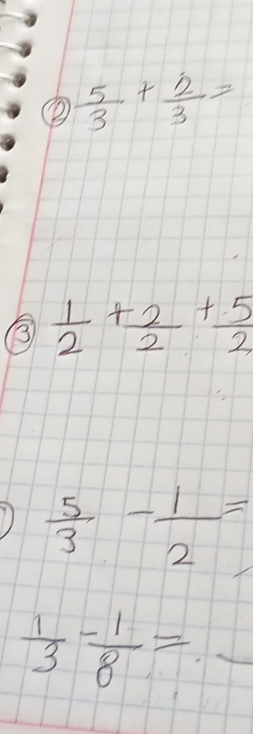 ② 5/3 + 2/3 =
③ 1/2 + 2/2 + 5/2
5/3 - 1/2 =
1/3 - 1/8 =